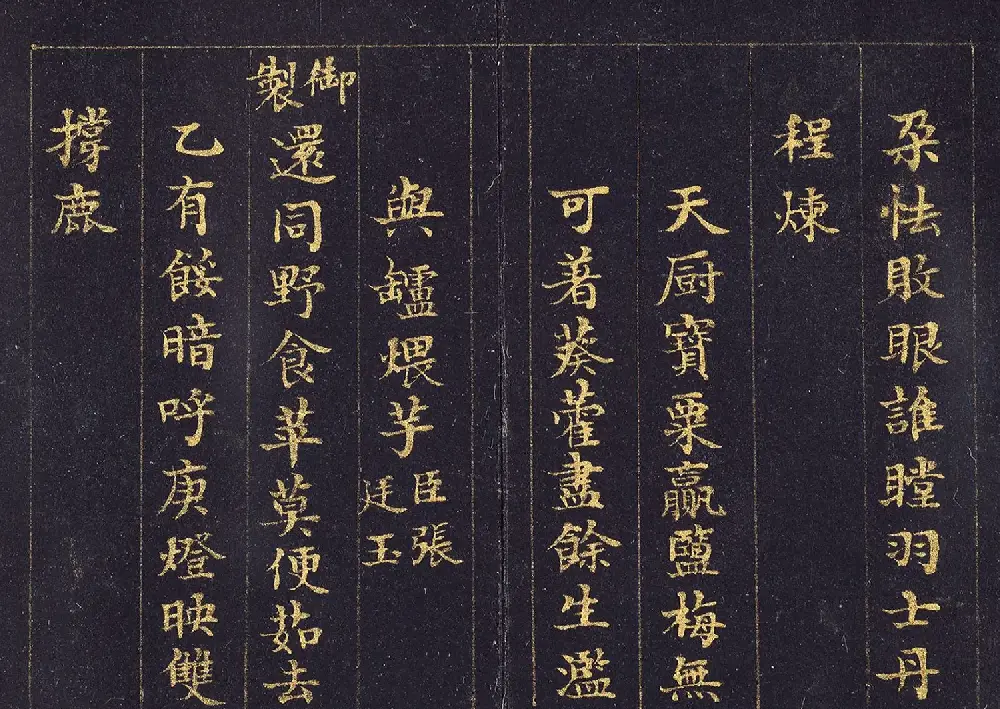 朶怯敗眼誰瞠羽士丹
程煉
天厨寶粟贏鹽梅無
可著葵藿盡餘生濫
與罏煨芋臣張廷玉
御製還同野食苹莫便茹去
乙有餒暗呼庚燈映雙
撐鹿